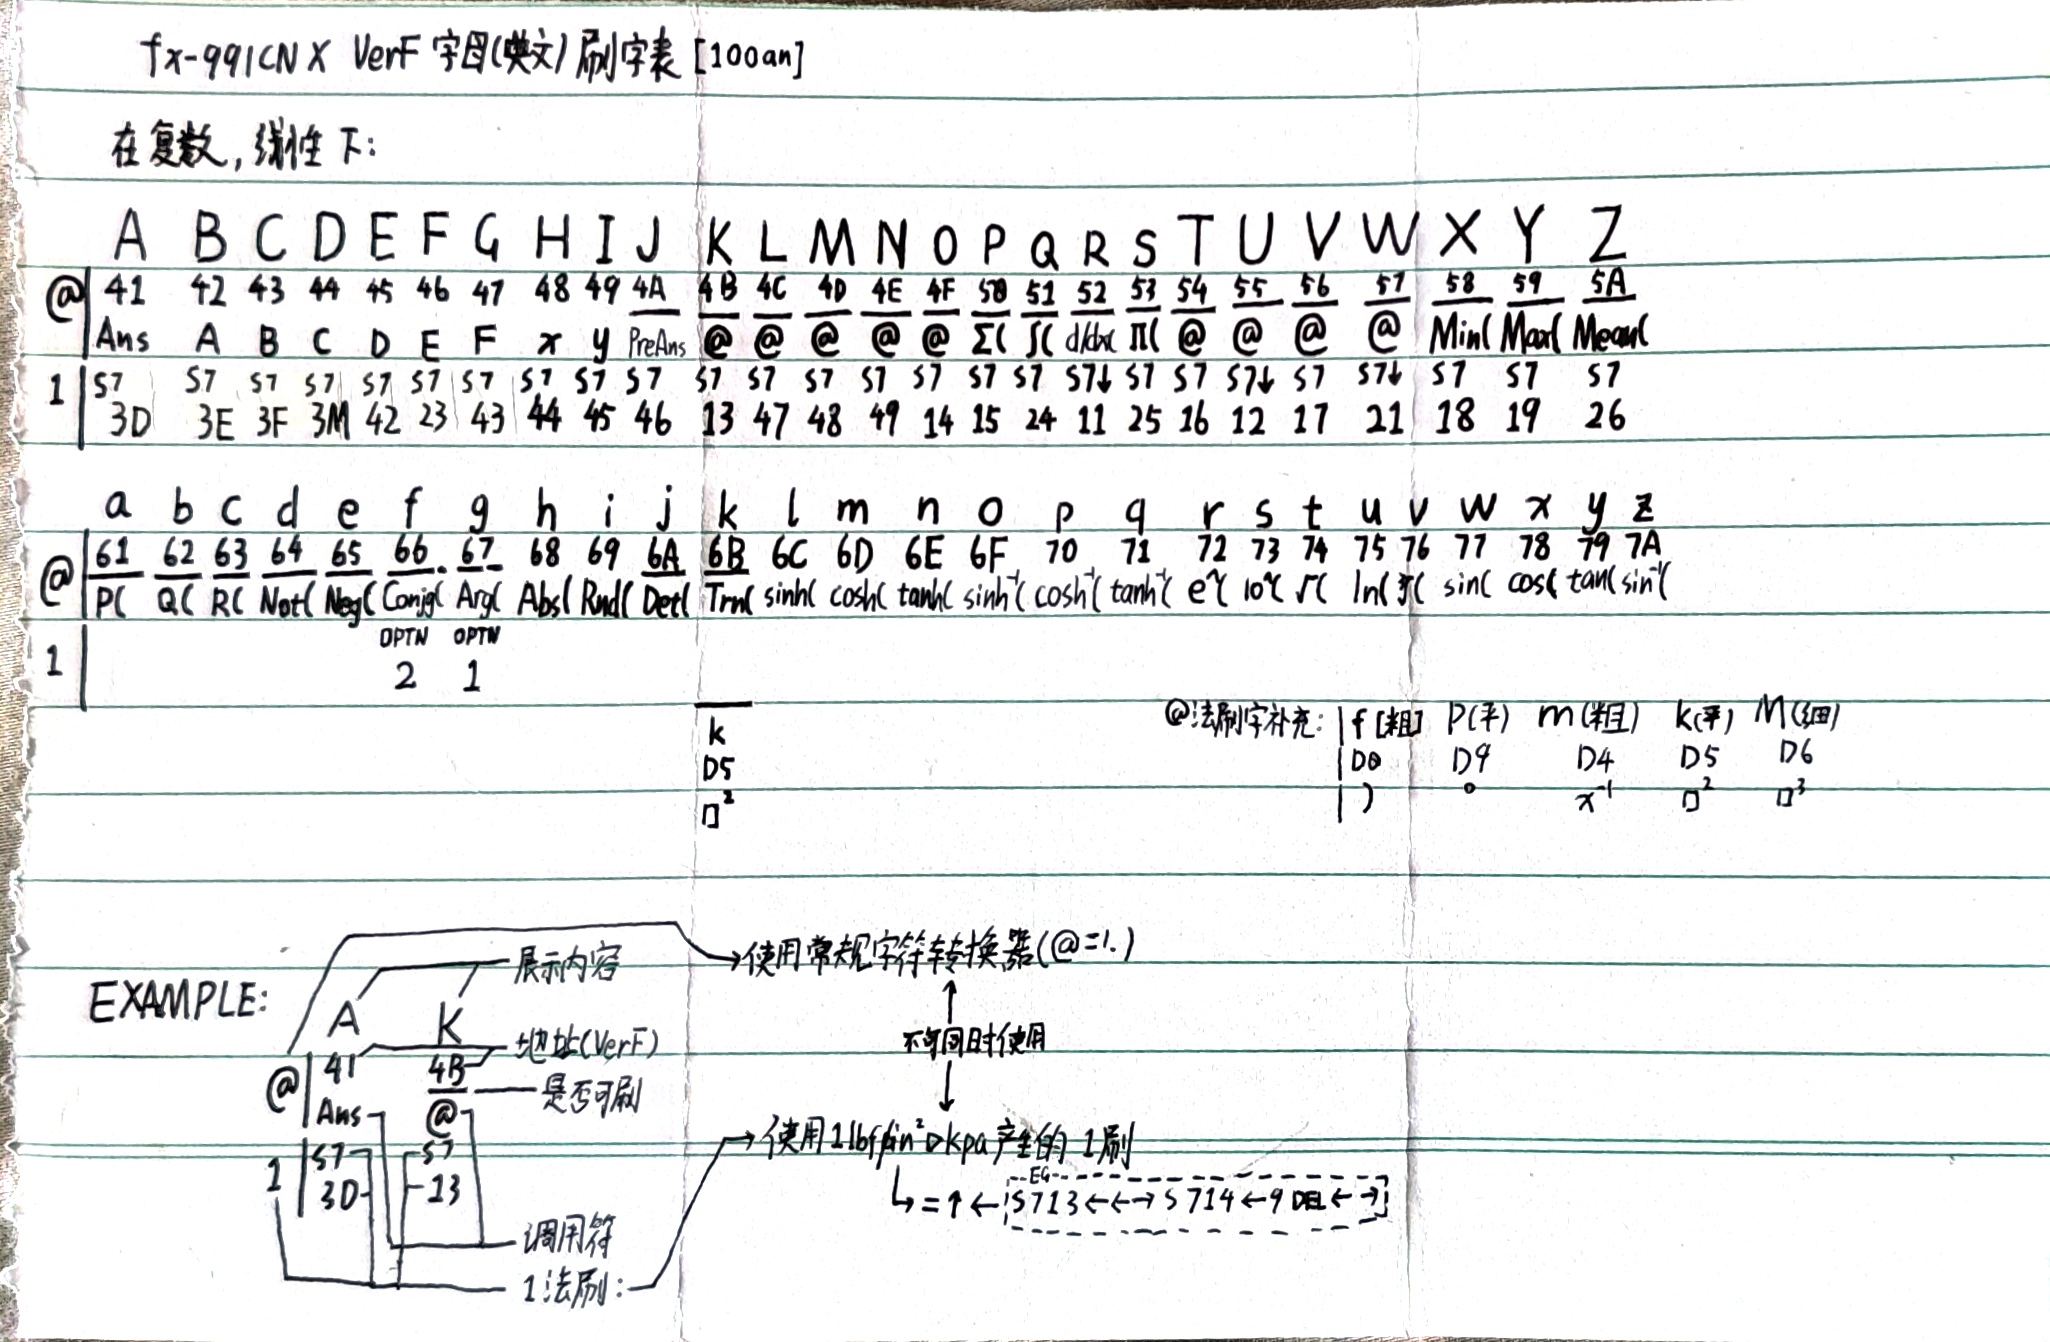 fx-991CN X VerF 字母(英文)刷字表 [100an]
在复数,线性下:
A B C D E F G H I J K L M N O P Q R S T U V W X Y Z
@ 41 42 43 44 45 46 47 48 49 4A 4B 4C 4D 4E 4F 50 51 52 53 54 55 56 57 58 59 5A
Ans A B C D E F x y PreAns @ @ @ @ @ Σ( ∫( d/dx( Π( @ @ @ @ Min( Max( Mean(
1 S7 S7 S7 S7 S7 S7 S7 S7 S7 S7 S7 S7 S7 S7 S7 S7 S7 S7↓ S7 S7 S7↓ S7 S7↓ S7 S7 S7
3D 3E 3F 3M 42 23 43 44 45 46 13 47 48 49 14 15 24 11 25 16 12 17 21 18 19 26
a b c d e f g h i j k l m n o p q r s t u v w x y z
@ 61 62 63 64 65 66 67 68 69 6A 6B 6C 6D 6E 6F 70 71 72 73 74 75 76 77 78 79 7A
P( Q( R( Not( Neg( Conjg( Arg( Abs( Rnd( Det( Trn( sinh( cosh( tanh( sinh⁻¹( cosh⁻¹( tanh⁻¹( e^( 10^( √( ln( ∛( sin( cos( tan( sin⁻¹(
OPTN OPTN
1 2 1
k
D5
□²
@法刷字补充: f[粗] P(平) m(粗) k(平) M(细)
D0 D9 D4 D5 D6
) ° x⁻¹ □² □³
EXAMPLE:
展示内容
使用常规字符转换器(@=1.)
A K
地址(VerF)
不可同时使用
@ 41 4B
是否可刷
Ans @
使用1lbf/in²▷kpa产生的 1刷
1 S7 S7
3D 13
EG
=↑← S713←←→S714←9 DEL←→
调用符
1法刷: